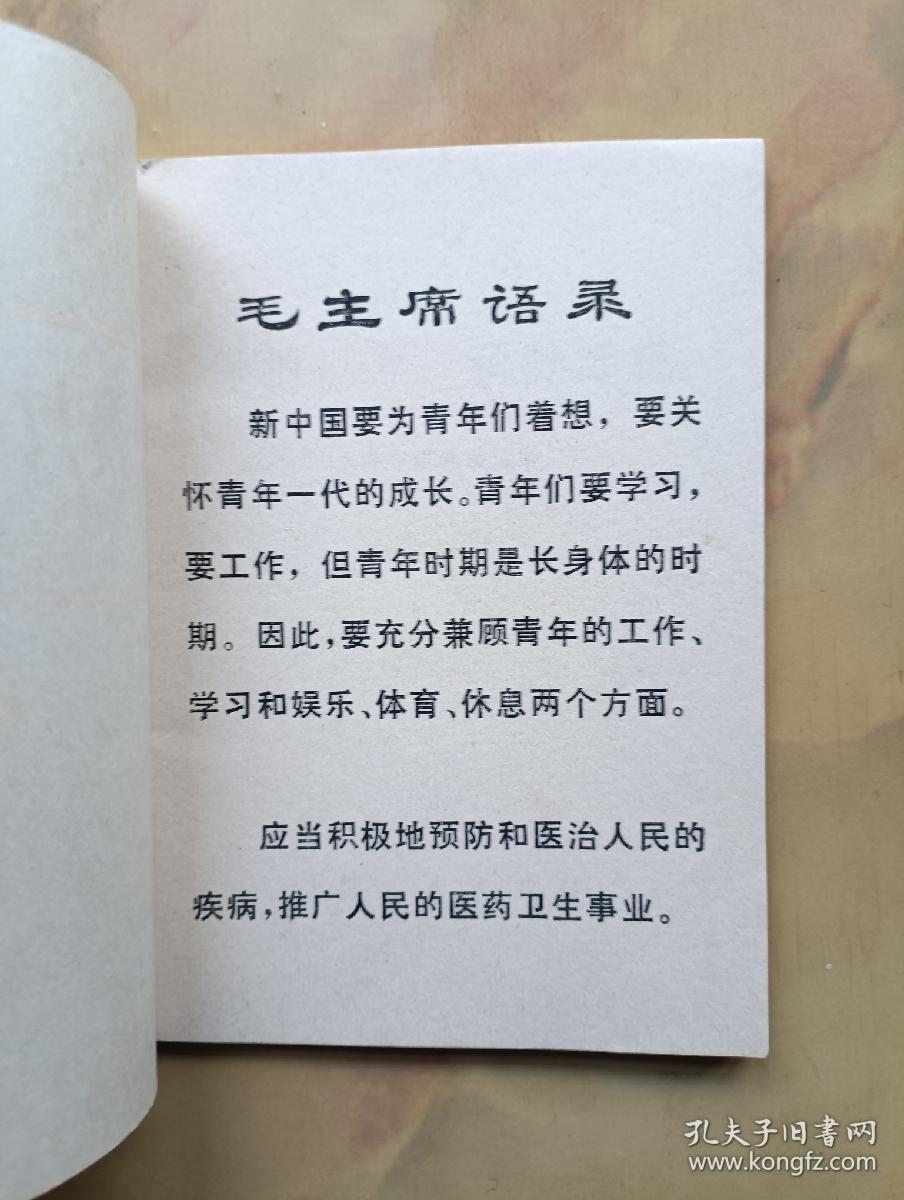 毛主席语录
新中国要为青年们着想，要关
怀青年一代的成长。青年们要学习，
要工作，但青年时期是长身体的时
期。因此，要充分兼顾青年的工作、
学习和娱乐、体育、休息两个方面。
应当积极地预防和医治人民的
疾病，推广人民的医药卫生事业。
孔夫子旧书网
www.kongfz.com